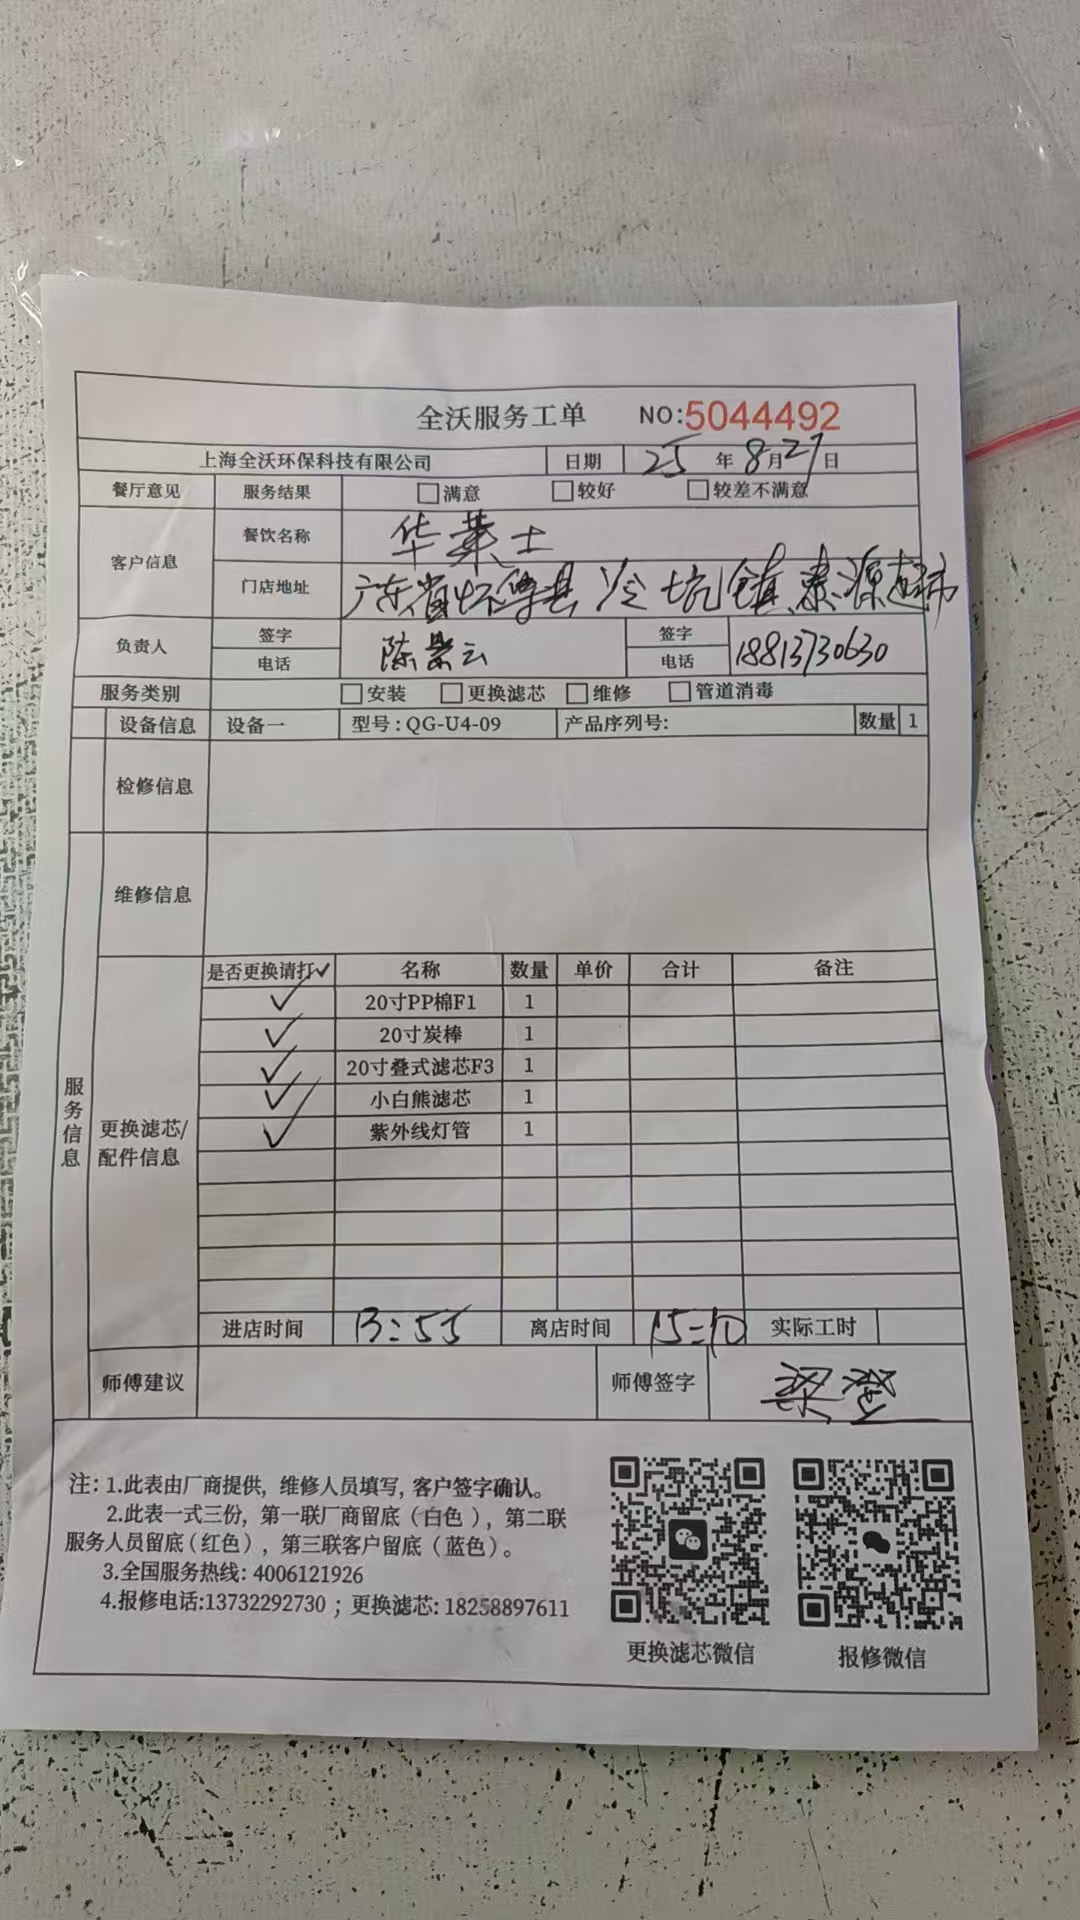 全沃服务工单 NO:5044492
上海全沃环保科技有限公司 日期 25 年 8 月 27 日
餐厅意见 服务结果 □满意 □较好 □较差不满意
客户信息 餐饮名称 华莱士
门店地址 广东省怀集县冷坑镇泰源超市
负责人 签字 陈景云 签字
电话 电话 18813730630
服务类别 □安装 □更换滤芯 □维修 □管道消毒
设备信息 设备一 型号:QG-U4-09 产品序列号: 数量 1
检修信息
维修信息
服务信息
更换滤芯/配件信息
是否更换请打✓ 名称 数量 单价 合计 备注
✓ 20寸PP棉F1 1
✓ 20寸炭棒 1
✓ 20寸叠式滤芯F3 1
✓ 小白熊滤芯 1
✓ 紫外线灯管 1
进店时间 13:55 离店时间 15:10 实际工时
师傅建议 师傅签字 梁登
注: 1.此表由厂商提供, 维修人员填写, 客户签字确认。
2.此表一式三份, 第一联厂商留底(白色), 第二联
服务人员留底(红色), 第三联客户留底(蓝色)。
3.全国服务热线: 4006121926
4.报修电话:13732292730 ; 更换滤芯: 18258897611
更换滤芯微信 报修微信